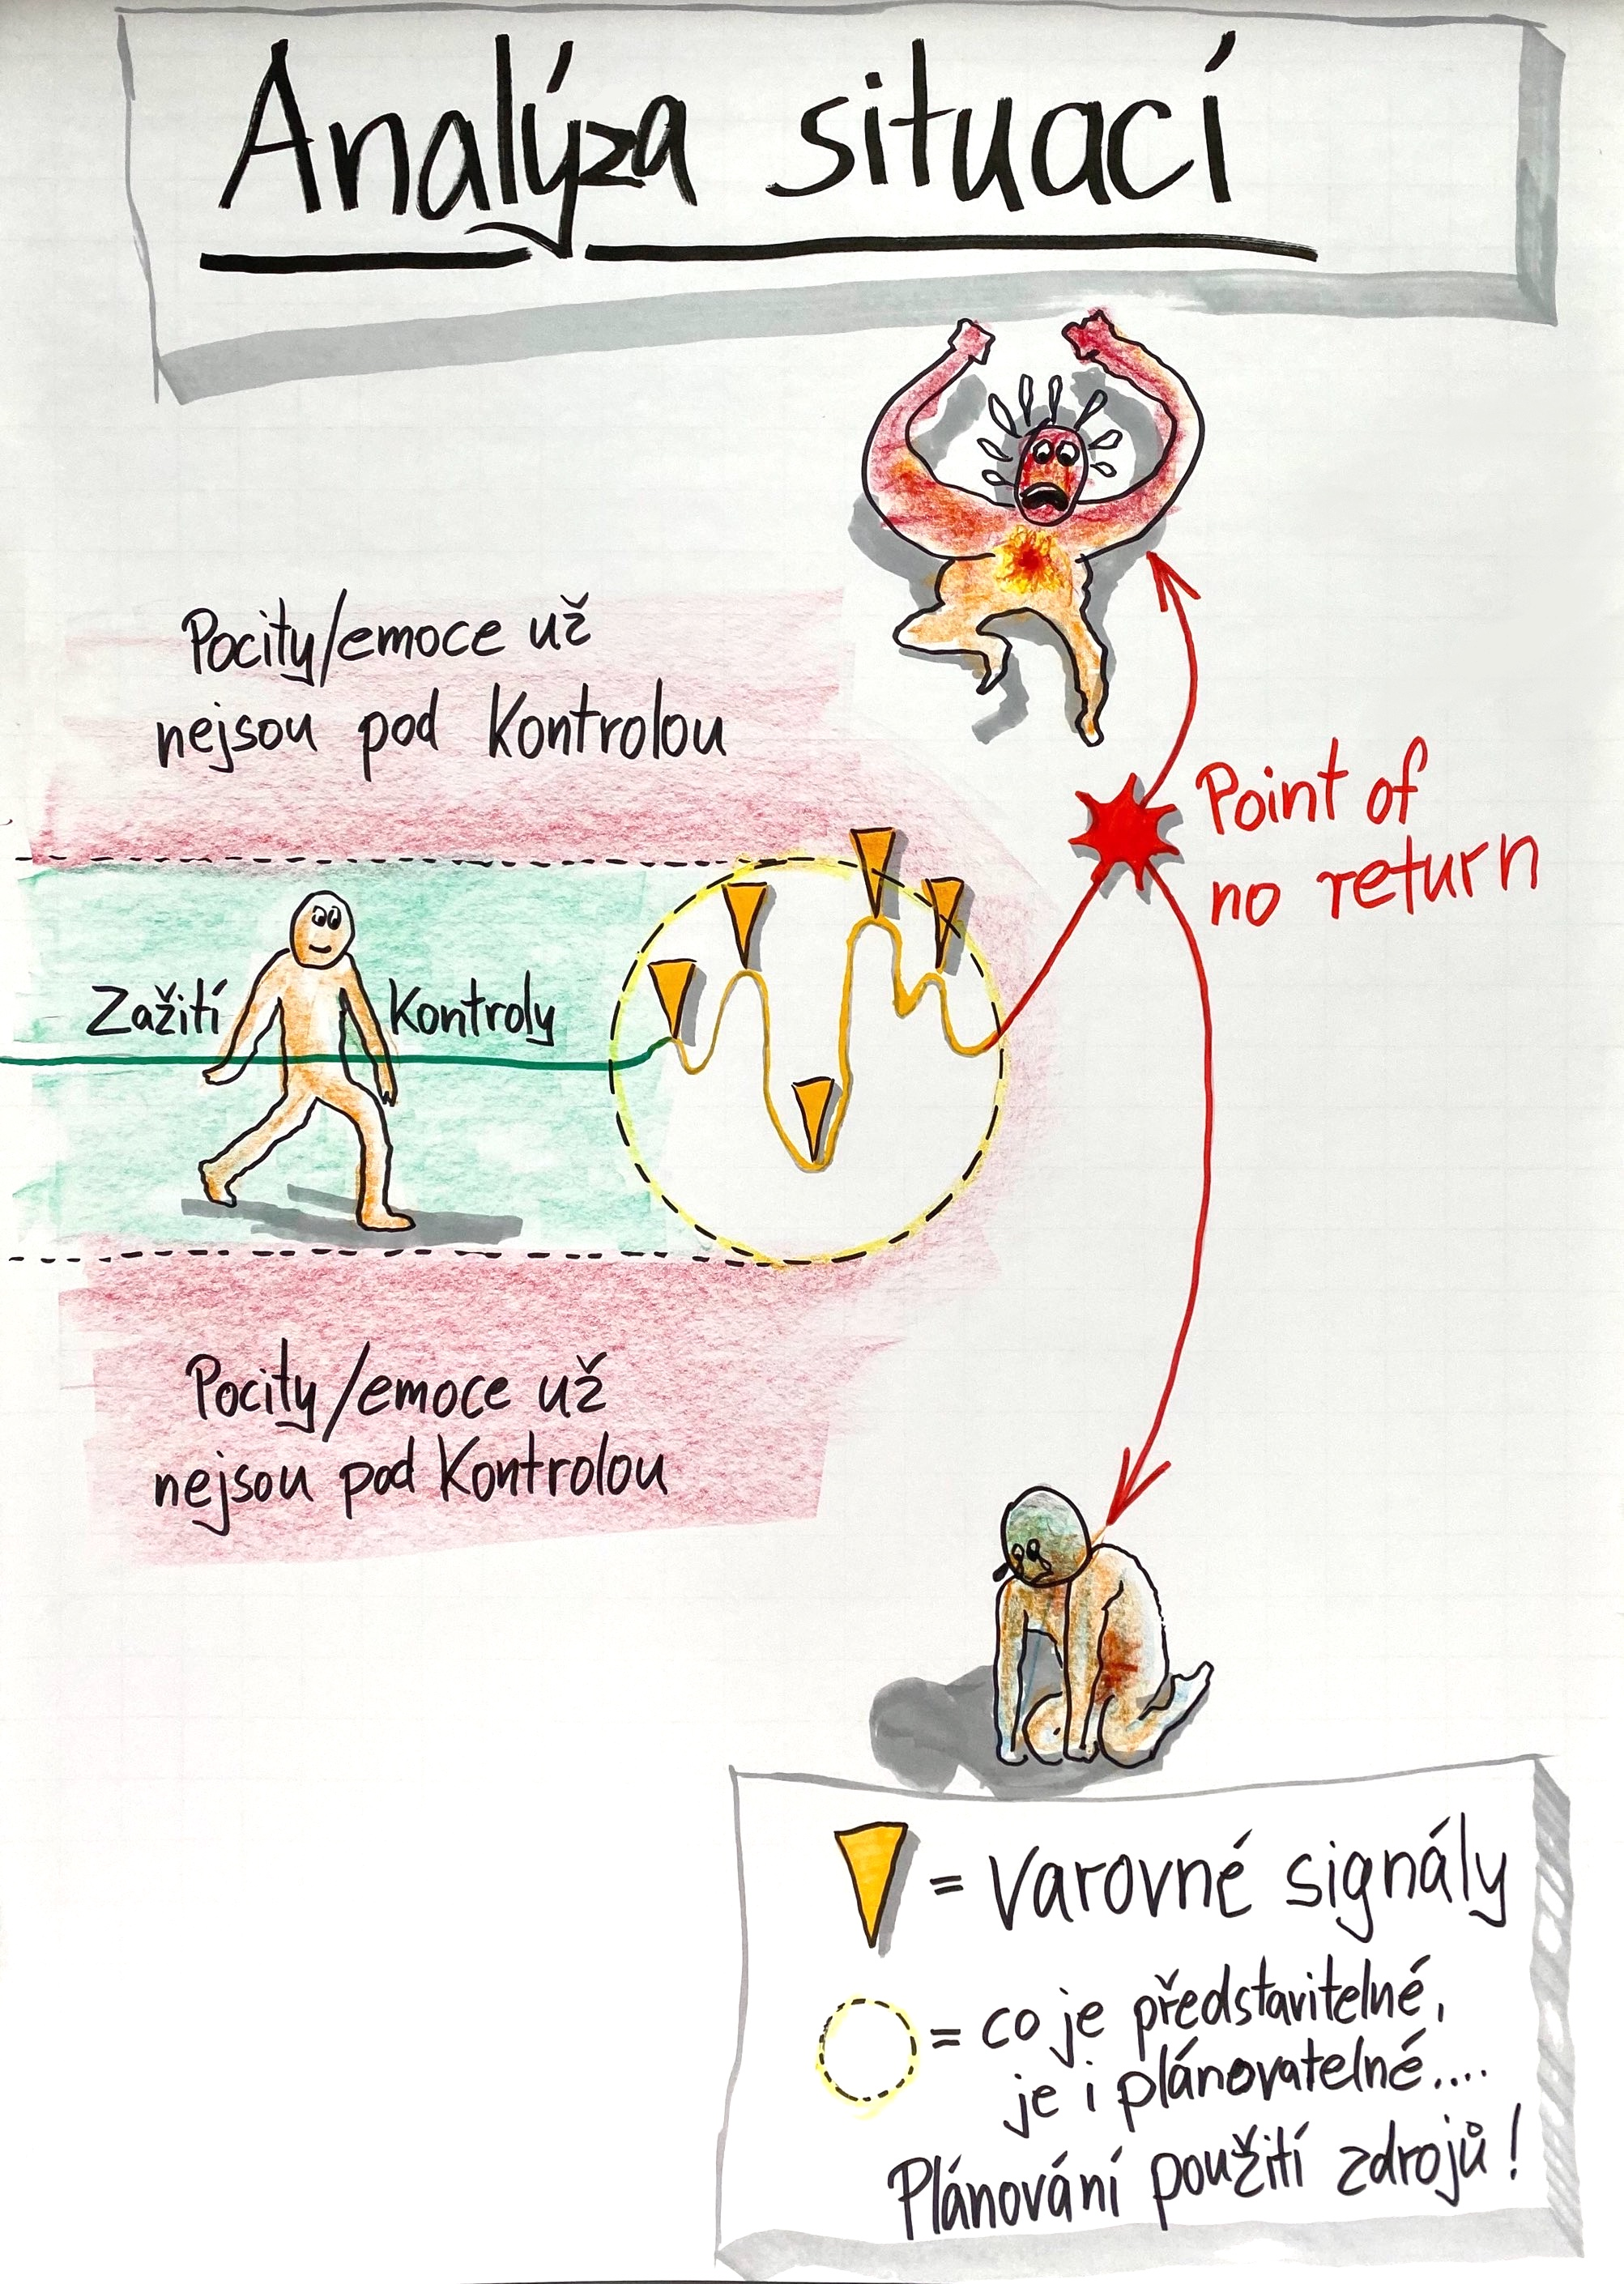 Analýza situací
Pocity/emoce už
nejsou pod kontrolou
Point of
no return
Zažití kontroly
Pocity/emoce už
nejsou pod kontrolou
= Varovné signály
= co je představitelné,
je i plánovatelné....
Plánování použití zdrojů!